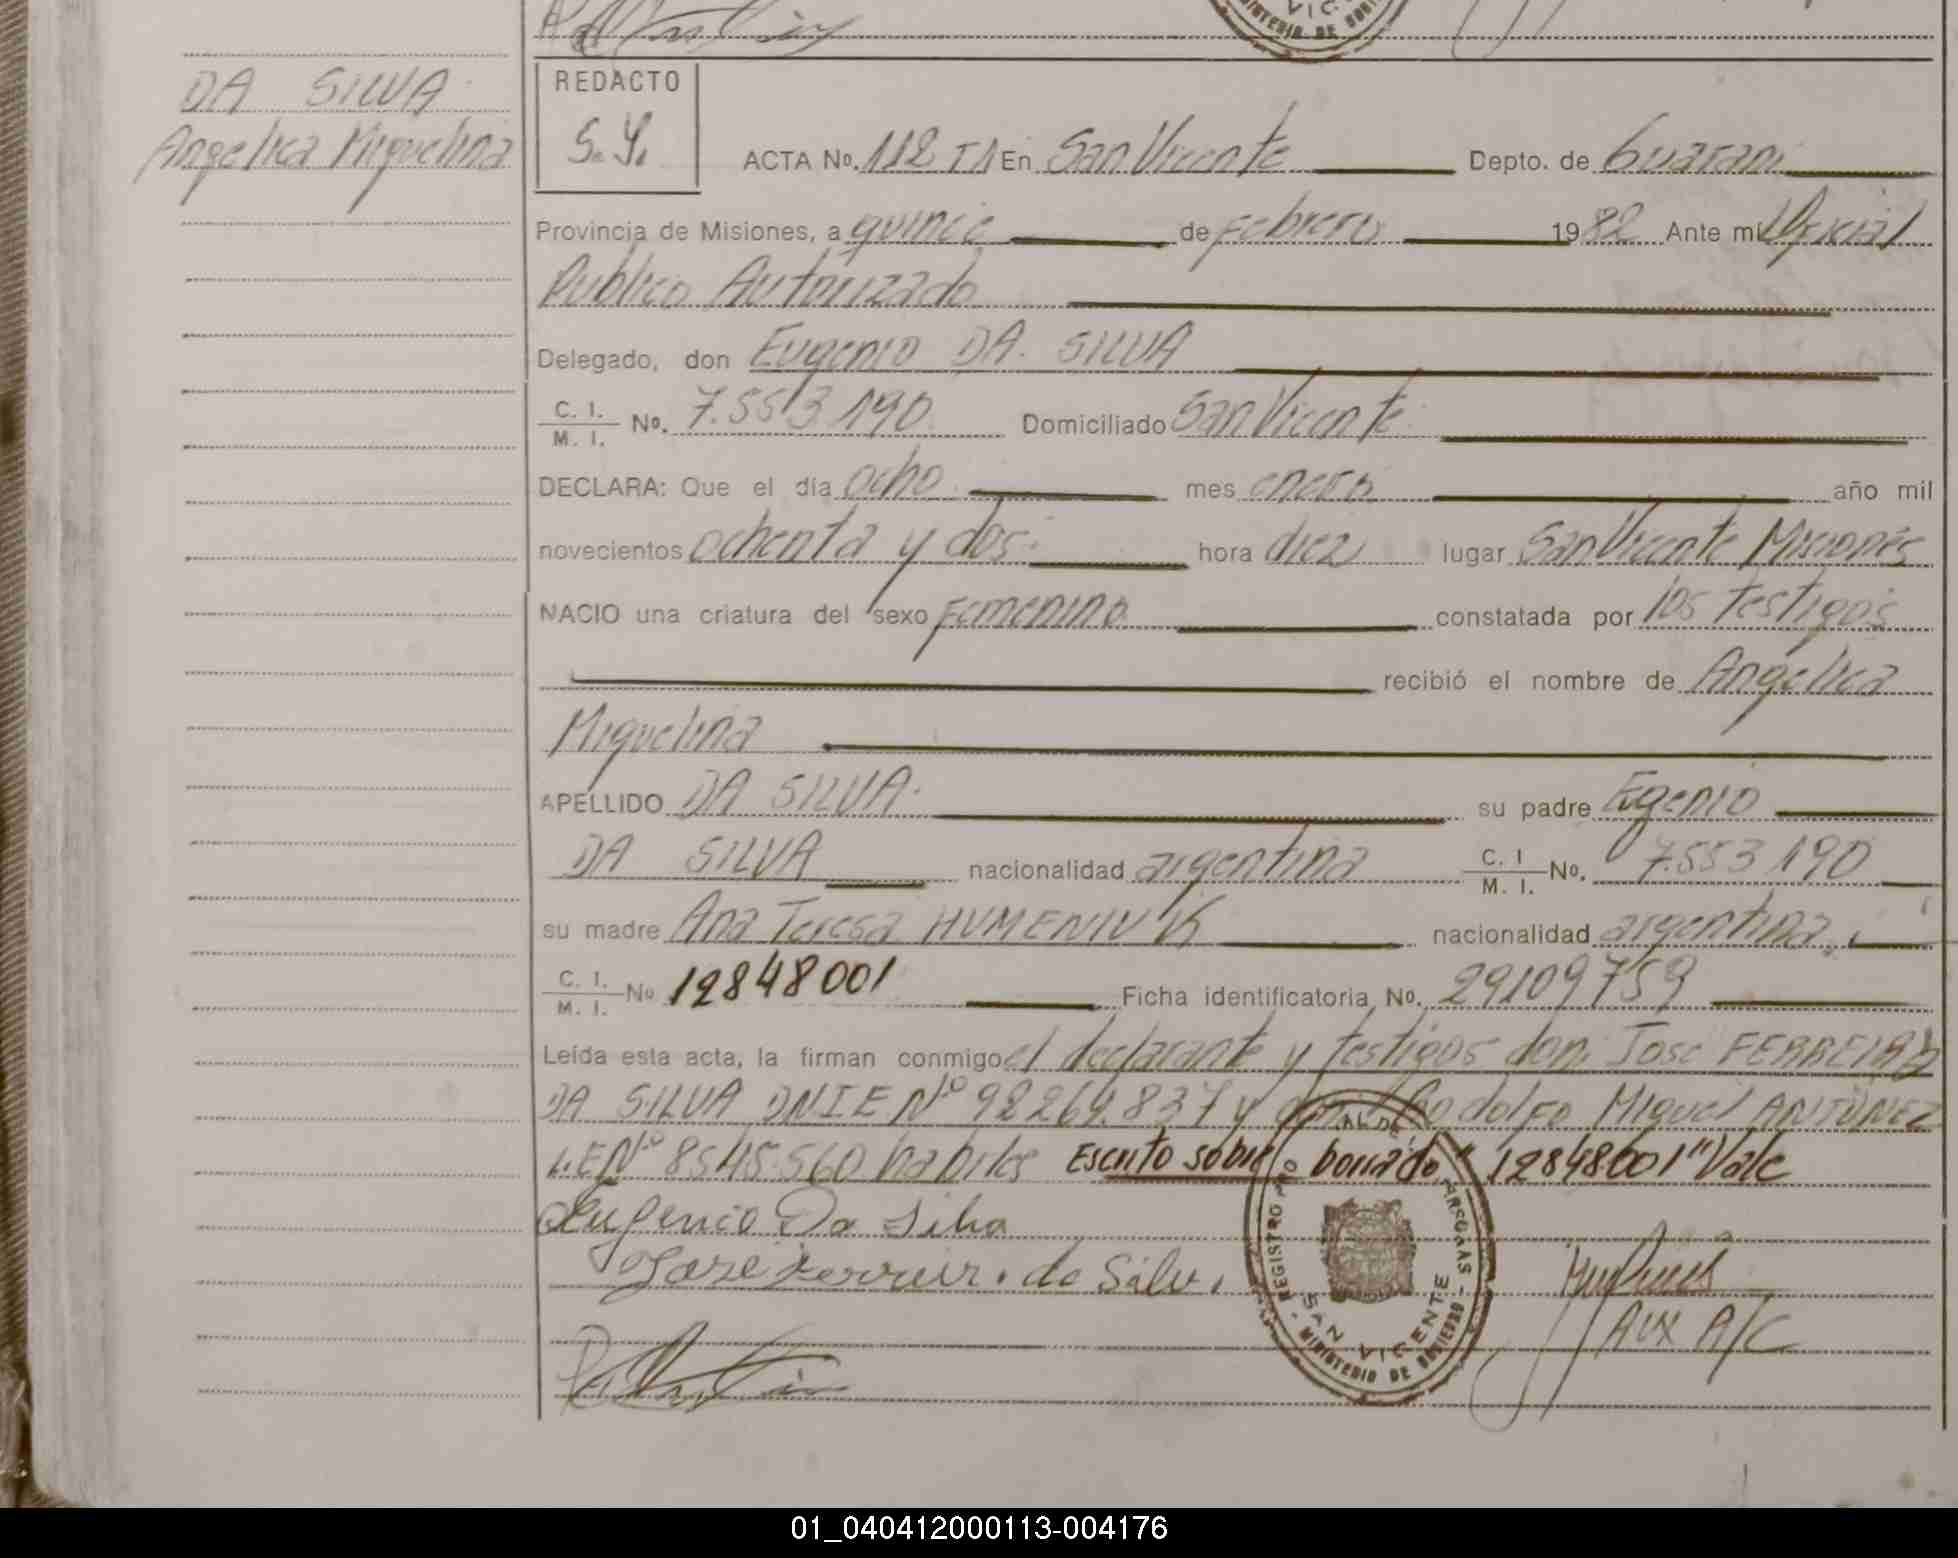 VIC
MINISTERIO DE GOBIERNO
DA SILVA
Angelica Miguelina
REDACTO
S. Y.
ACTA No. 112 T1 En San Vicente Depto. de Guarani
Provincia de Misiones, a quince de Febrero 1982 Ante mi Oficial
Publico Autorizado
Delegado, don Eugenio DA. SILVA
C. I. M. I. No. 7.553.190 Domiciliado San Vicente
DECLARA: Que el día ocho mes enero año mil
novecientos ochenta y dos hora diez lugar San Vicente Misiones
NACIO una criatura del sexo Femenino constatada por los testigos
recibió el nombre de Angelica
Miguelina
APELLIDO DA SILVA. su padre Eugenio
DA SILVA nacionalidad argentina C. I M. I. No. 7.553.190
su madre Ana Teresa HUMENIUK nacionalidad argentina.
C. I. M. I. No 12848001 Ficha identificatoria No. 29109759
Leída esta acta, la firman conmigo el declarante y testigos don: Jose FERREIRA
DA SILVA DNIE Nº 92269.837 y don Rodolfo Miguel ANTUNEZ
L.E Nº 8545.560 habiles Escrito sobre borrado "12848001" Vale
Eugenio Da Silva
Jose Ferreir. da Silv.
AUX A/C
REGISTRO
SAN VICENTE
MINISTERIO DE GOBIERNO
01_040412000113-004176